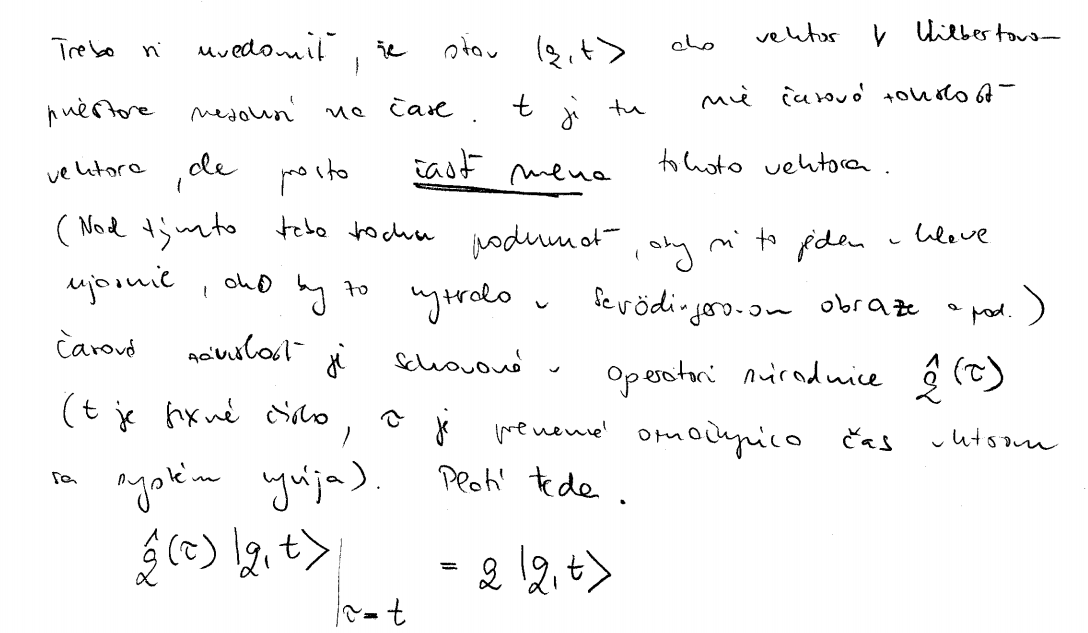 Treba si uvedomiť, že stav |q,t> ako vektor v Hilbertovo-
priestore nezávisí na čase. t je tu nie časová závislosť
vektora, ale proste časť mena tohoto vektora.
(Nad týmto treba trochu podumať, aby si to jeden v hlave
ujasnil, ako by to vyzeralo v Schrödingerovom obraze a pod.)
Časová závislosť je schovaná v operatori súradnice q̂(τ)
(t je fixné číslo, τ je premenná označujúca čas v ktorom
sa systém vyvíja). Platí teda.
q̂(τ) |q,t> |τ=t = q |q,t>